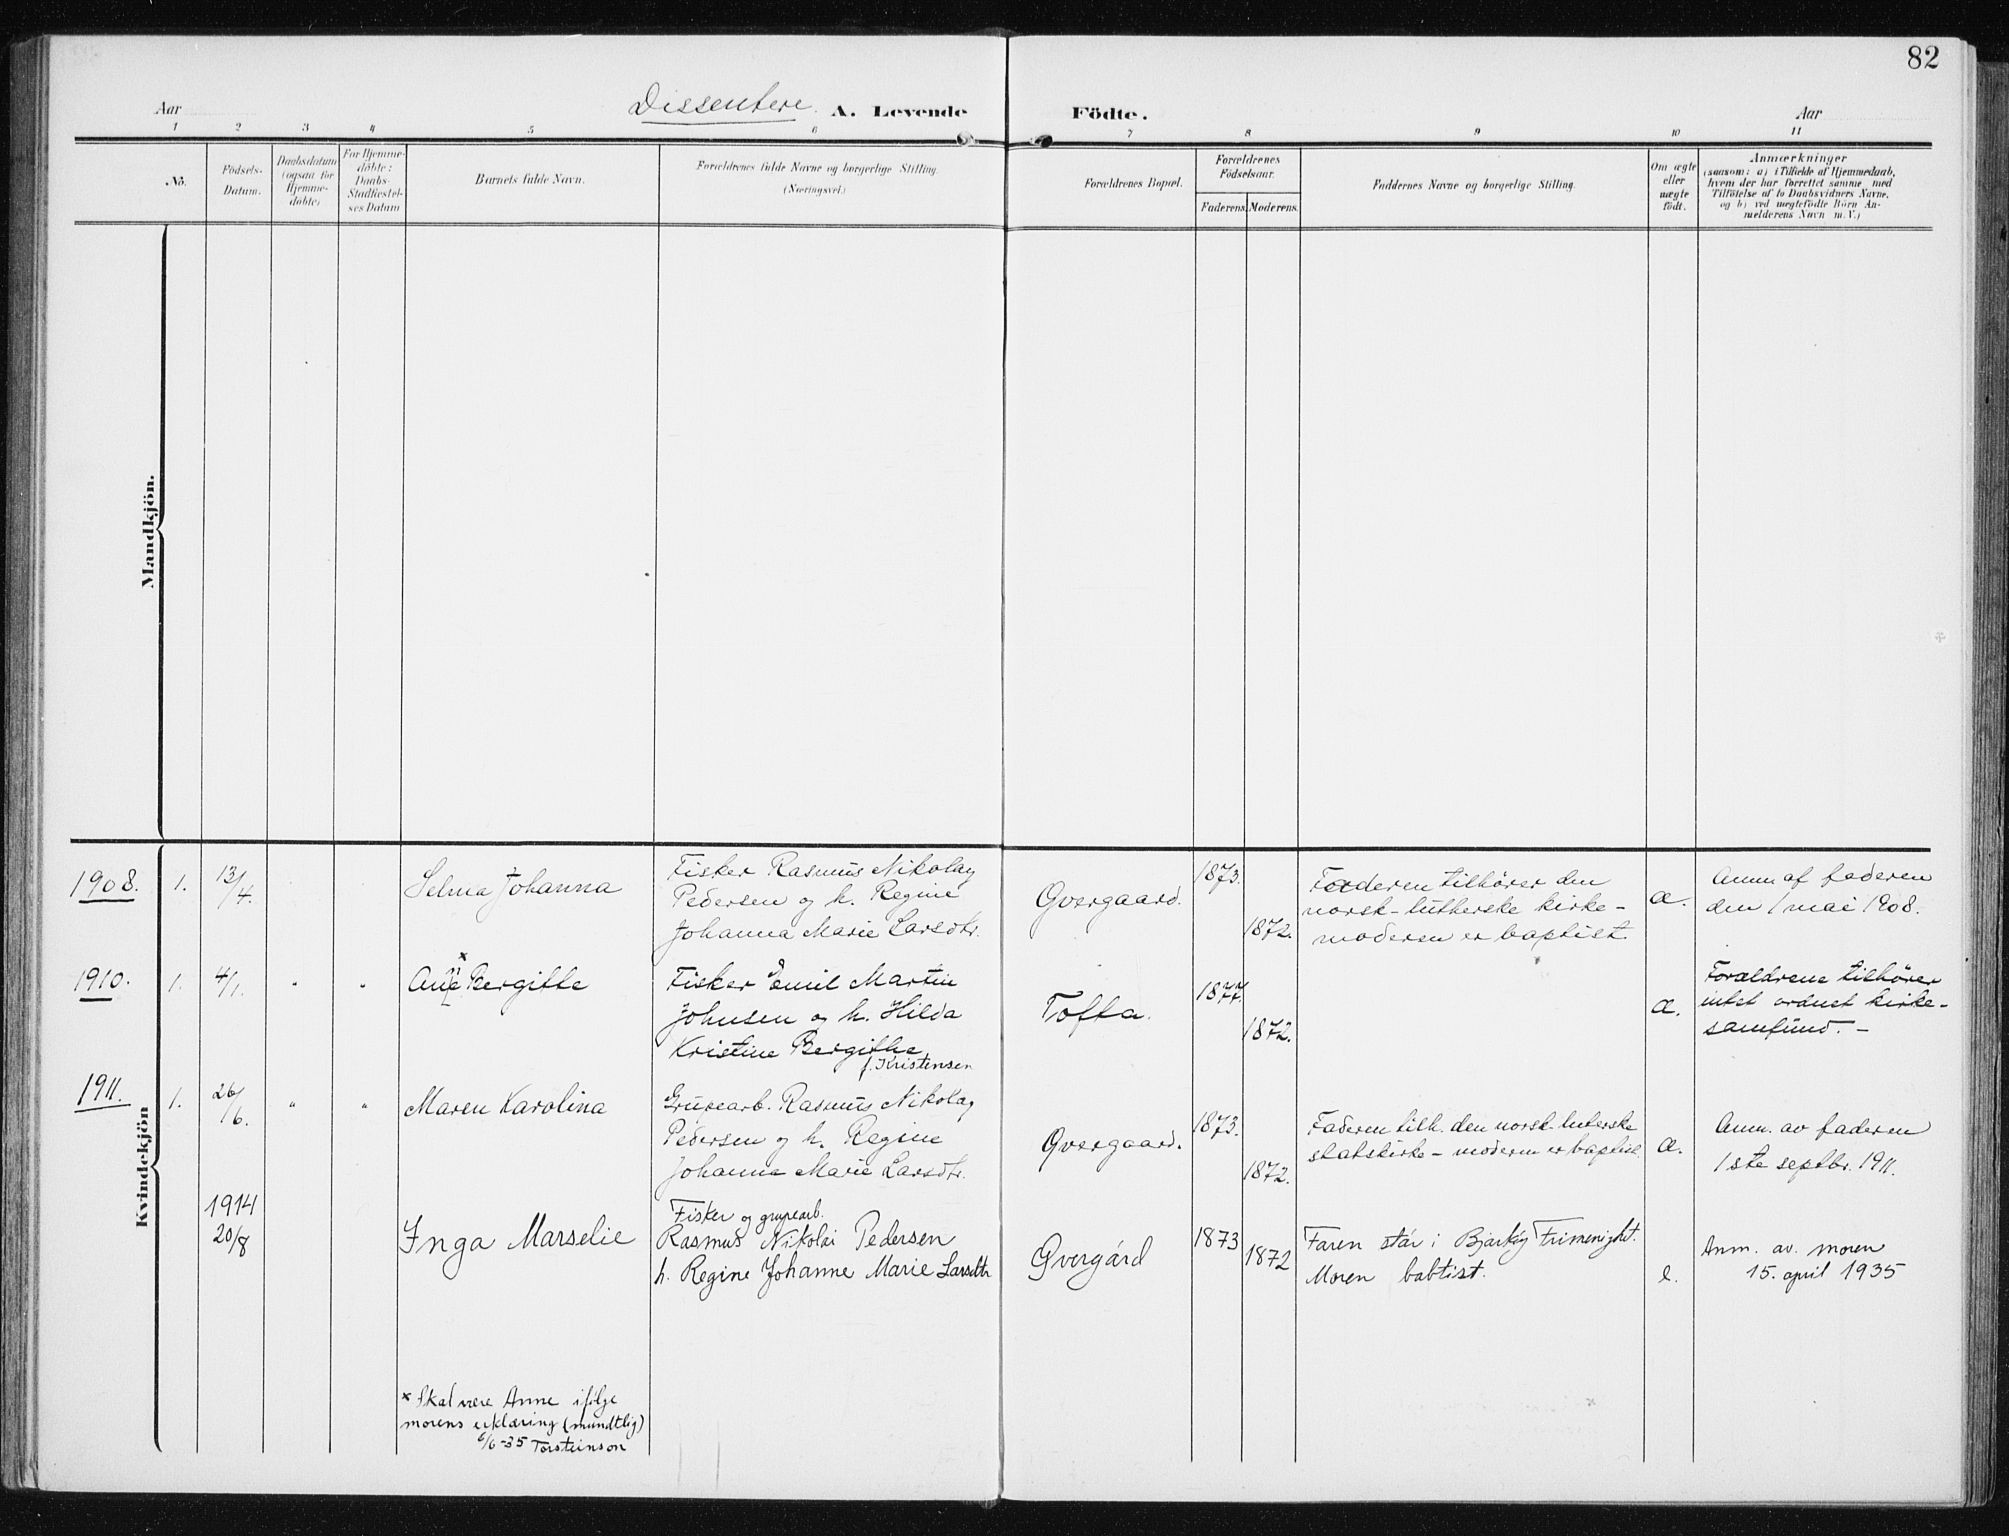 82
Aar
Dissentere. A. Levende Födte.
Aar
1 2 3 4 5 6 7 8 9 10 11
No.
Födsels-
Datum.
Daabsdatum
(ogsaa for
Hjemme-
döbte)
For Hjemme-
döbte:
Daabs-
Stadfæstel-
ses Datum
Barnets fulde Navn.
Forældrenes fulde Navne og borgerlige Stilling.
(Næringsvei.)
Forældrenes Bopæl.
Forældrenes
Födselsaar.
Faderens. Moderens.
Faddernes Navne og borgerlige Stilling.
Om ægte
eller
uægte
födt.
Anmærkninger
(saasom: a) i Tilfælde af Hjemmedaab,
hvem der har forrettet samme med
Tilföielse af to Daabsvidners Navne,
og b) ved uægtefödte Börn An-
melderens Navn m. V.)
Mandkjön.
Kvindekjön
1908. 1. 13/4. Selma Johanna
Fisker Rasmus Nikolay
Pedersen og h. Regine
Johanna Marie Larsdtr.
Qvergaard.
1873.
1872.
Faderen tilhører den
norsk-lutherske kirke-
moderen er baptist.
æ.
Anm. af faderen
den 1 mai 1908.
1910. 1. 4/1. " " Ane × Bergitte
Fisker Emil Martin
Johnsen og h. Hilda
Kristine Bergithe
f. Kristensen
Tofta.
1877.
1872.
æ.
Forældrene tilhører
intet ordnet kirke-
samfund. -
1911. 1. 26/6. " " Maren Karolina
Grupearb. Rasmus Nikolay
Pedersen og h. Regine
Johanna Marie Larsdtr.
Qvergaard.
1873.
1872.
Faderen tilh. den norsk-luterske
statskirke - moderen er baptist.
æ.
Anm. av faderen
1ste septbr. 1911.
1914
20/8 Inga Marselie
Fisker og grupearb.
Rasmus Nikolai Pedersen
h. Regine Johanne Marie Larsdtr
Qvergård
1873
1872
Faren står i Bjarkøy Frimenight.
Moren babtist.
e.
Anm. av. moren
15. april 1935
× Skal være Anne ifølge
morens erklæring (mundtlig)
6/6-35 Torsteinson